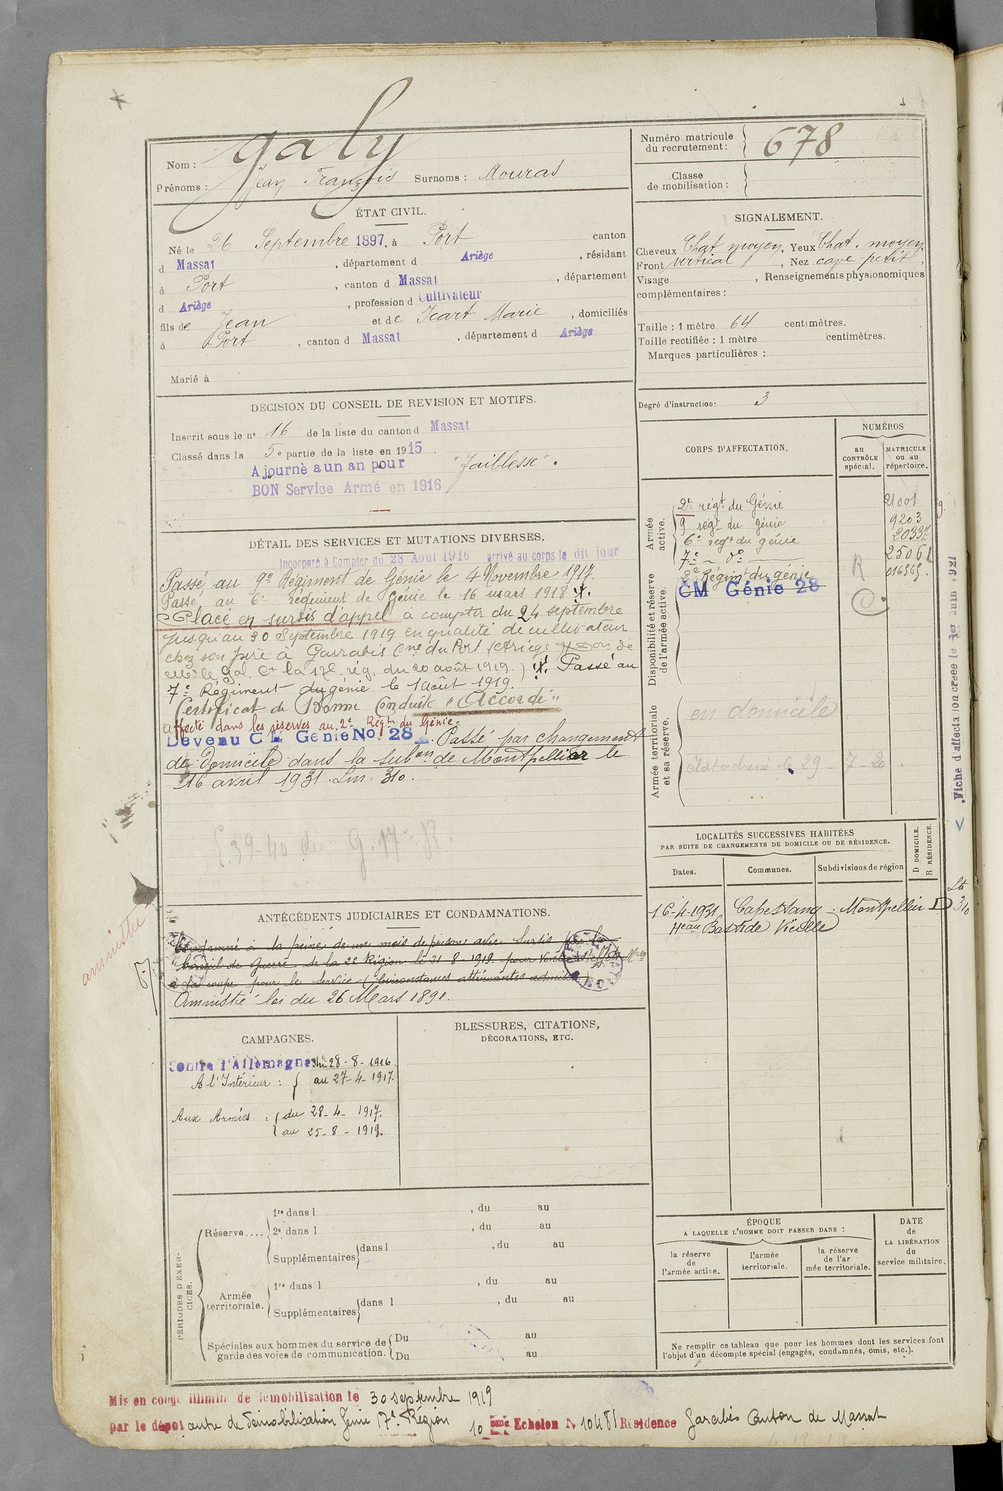 Numéro matricule du recrutement : 678
Classe de mobilisation :
Nom : Galy
Prénoms : Jean François Surnoms : Mouras
ÉTAT CIVIL.
Né le 26 Septembre 1897, à Port canton
d Massat , département d Ariège , résidant
à Port , canton d Massat , département
d Ariège , profession d Cultivateur
fils de Jean et de Icart Marie , domiciliés
à Port , canton d Massat , département d Ariège
Marié à
SIGNALEMENT.
Cheveux Chat moyen Yeux Chat. moyen
Front vertical , Nez cave petit
Visage , Renseignements physionomiques
complémentaires :
Taille : 1 mètre 64 centimètres.
Taille rectifiée : 1 mètre centimètres.
Marques particulières :
Degré d'instruction : 3
DECISION DU CONSEIL DE REVISION ET MOTIFS.
Inscrit sous le n° 16 de la liste du canton d Massat
Classé dans la 5e partie de la liste en 1915.
Ajourné a un an pour "faiblesse".
BON Service Armé en 1916
DÉTAIL DES SERVICES ET MUTATIONS DIVERSES.
Incorporé à Compter du 28 Août 1916 arrivé au corps le dit jour
Passé au 9e Régiment de Génie le 4 Novembre 1917.
Passé au 6e Régiment de Génie le 16 mars 1918
Placé en sursis d'appel à compter du 24 septembre
jusqu'au 30 Septembre 1919 en qualité de cultivateur
chez son père à
rég. du 20 août 1919.) Passé au
7e Régiment du génie le 1 août 1919.
Certificat de Bonne Conduite "Accordé"
Affecté dans les réserves au 2e Régt du Génie.
Devenu C M Génie No 28 Passé par changement
de Domicile dans la subon de Montpellier le
16 avril 1931 Lm. 310.
CORPS D'AFFECTATION.
NUMÉROS
AU CONTRÔLE spécial.
MATRICULE ou au répertoire.
Armée active.
2e régt du Génie 21001
9 regt du génie 9203
6e regt du génie 20337
7e do 25061
2e Régimt du génie
CM Génie 28
Disponibilité et réserve de l'armée active.
Armée territoriale et sa réserve.
en domicile
Fiche d'affectation creée le 1er Juin 1921
LOCALITÉS SUCCESSIVES HABITÉES
PAR SUITE DE CHANGEMENTS DE DOMICILE OU DE RÉSIDENCE.
Dates. Communes. Subdivisions de région D DOMICILE. R RÉSIDENCE.
16-4-1931 Capestang Montpellier D
Heau Bastide Vieille
ANTÉCÉDENTS JUDICIAIRES ET CONDAMNATIONS.
amnistié
Condamné à la peine de un mois de prison avec Sursis
Conseil de Guerre de la 2e Région le 21-8-1918. pour
pour le service (circonstances atténuantes admises
Amnistié loi du 26 Mars 1891.
CAMPAGNES.
Contre l'Allemagne
A l'Intérieur : du 28-8-1916
au 27-4-1917.
Aux Armées : du 28-4-1917.
au 25-8-1919.
BLESSURES, CITATIONS,
DÉCORATIONS, ETC.
PÉRIODES D'EXERCICES.
Réserve.... 1re dans l , du au
2e dans l , du au
Supplémentaires dans l , du au
Armée territoriale. 1re dans l , du au
Supplémentaires dans l , du au
Spéciales aux hommes du service de garde des voies de communication. Du au
Du au
ÉPOQUE
A LAQUELLE L'HOMME DOIT PASSER DANS :
la réserve de l'armée active.
l'armée territoriale.
la réserve de l'armée territoriale.
DATE de LA LIBÉRATION du service militaire.
Ne remplir ce tableau que pour les hommes dont les services font
l'objet d'un décompte spécial (engagés, condamnés, omis, etc.).
Mis en congé illimité de demobilisation le 30 septembre 1919
par le dépôt de Démobilisation Génie 17e Région 10 ème Echelon N 10481 Résidence Canton de Massat